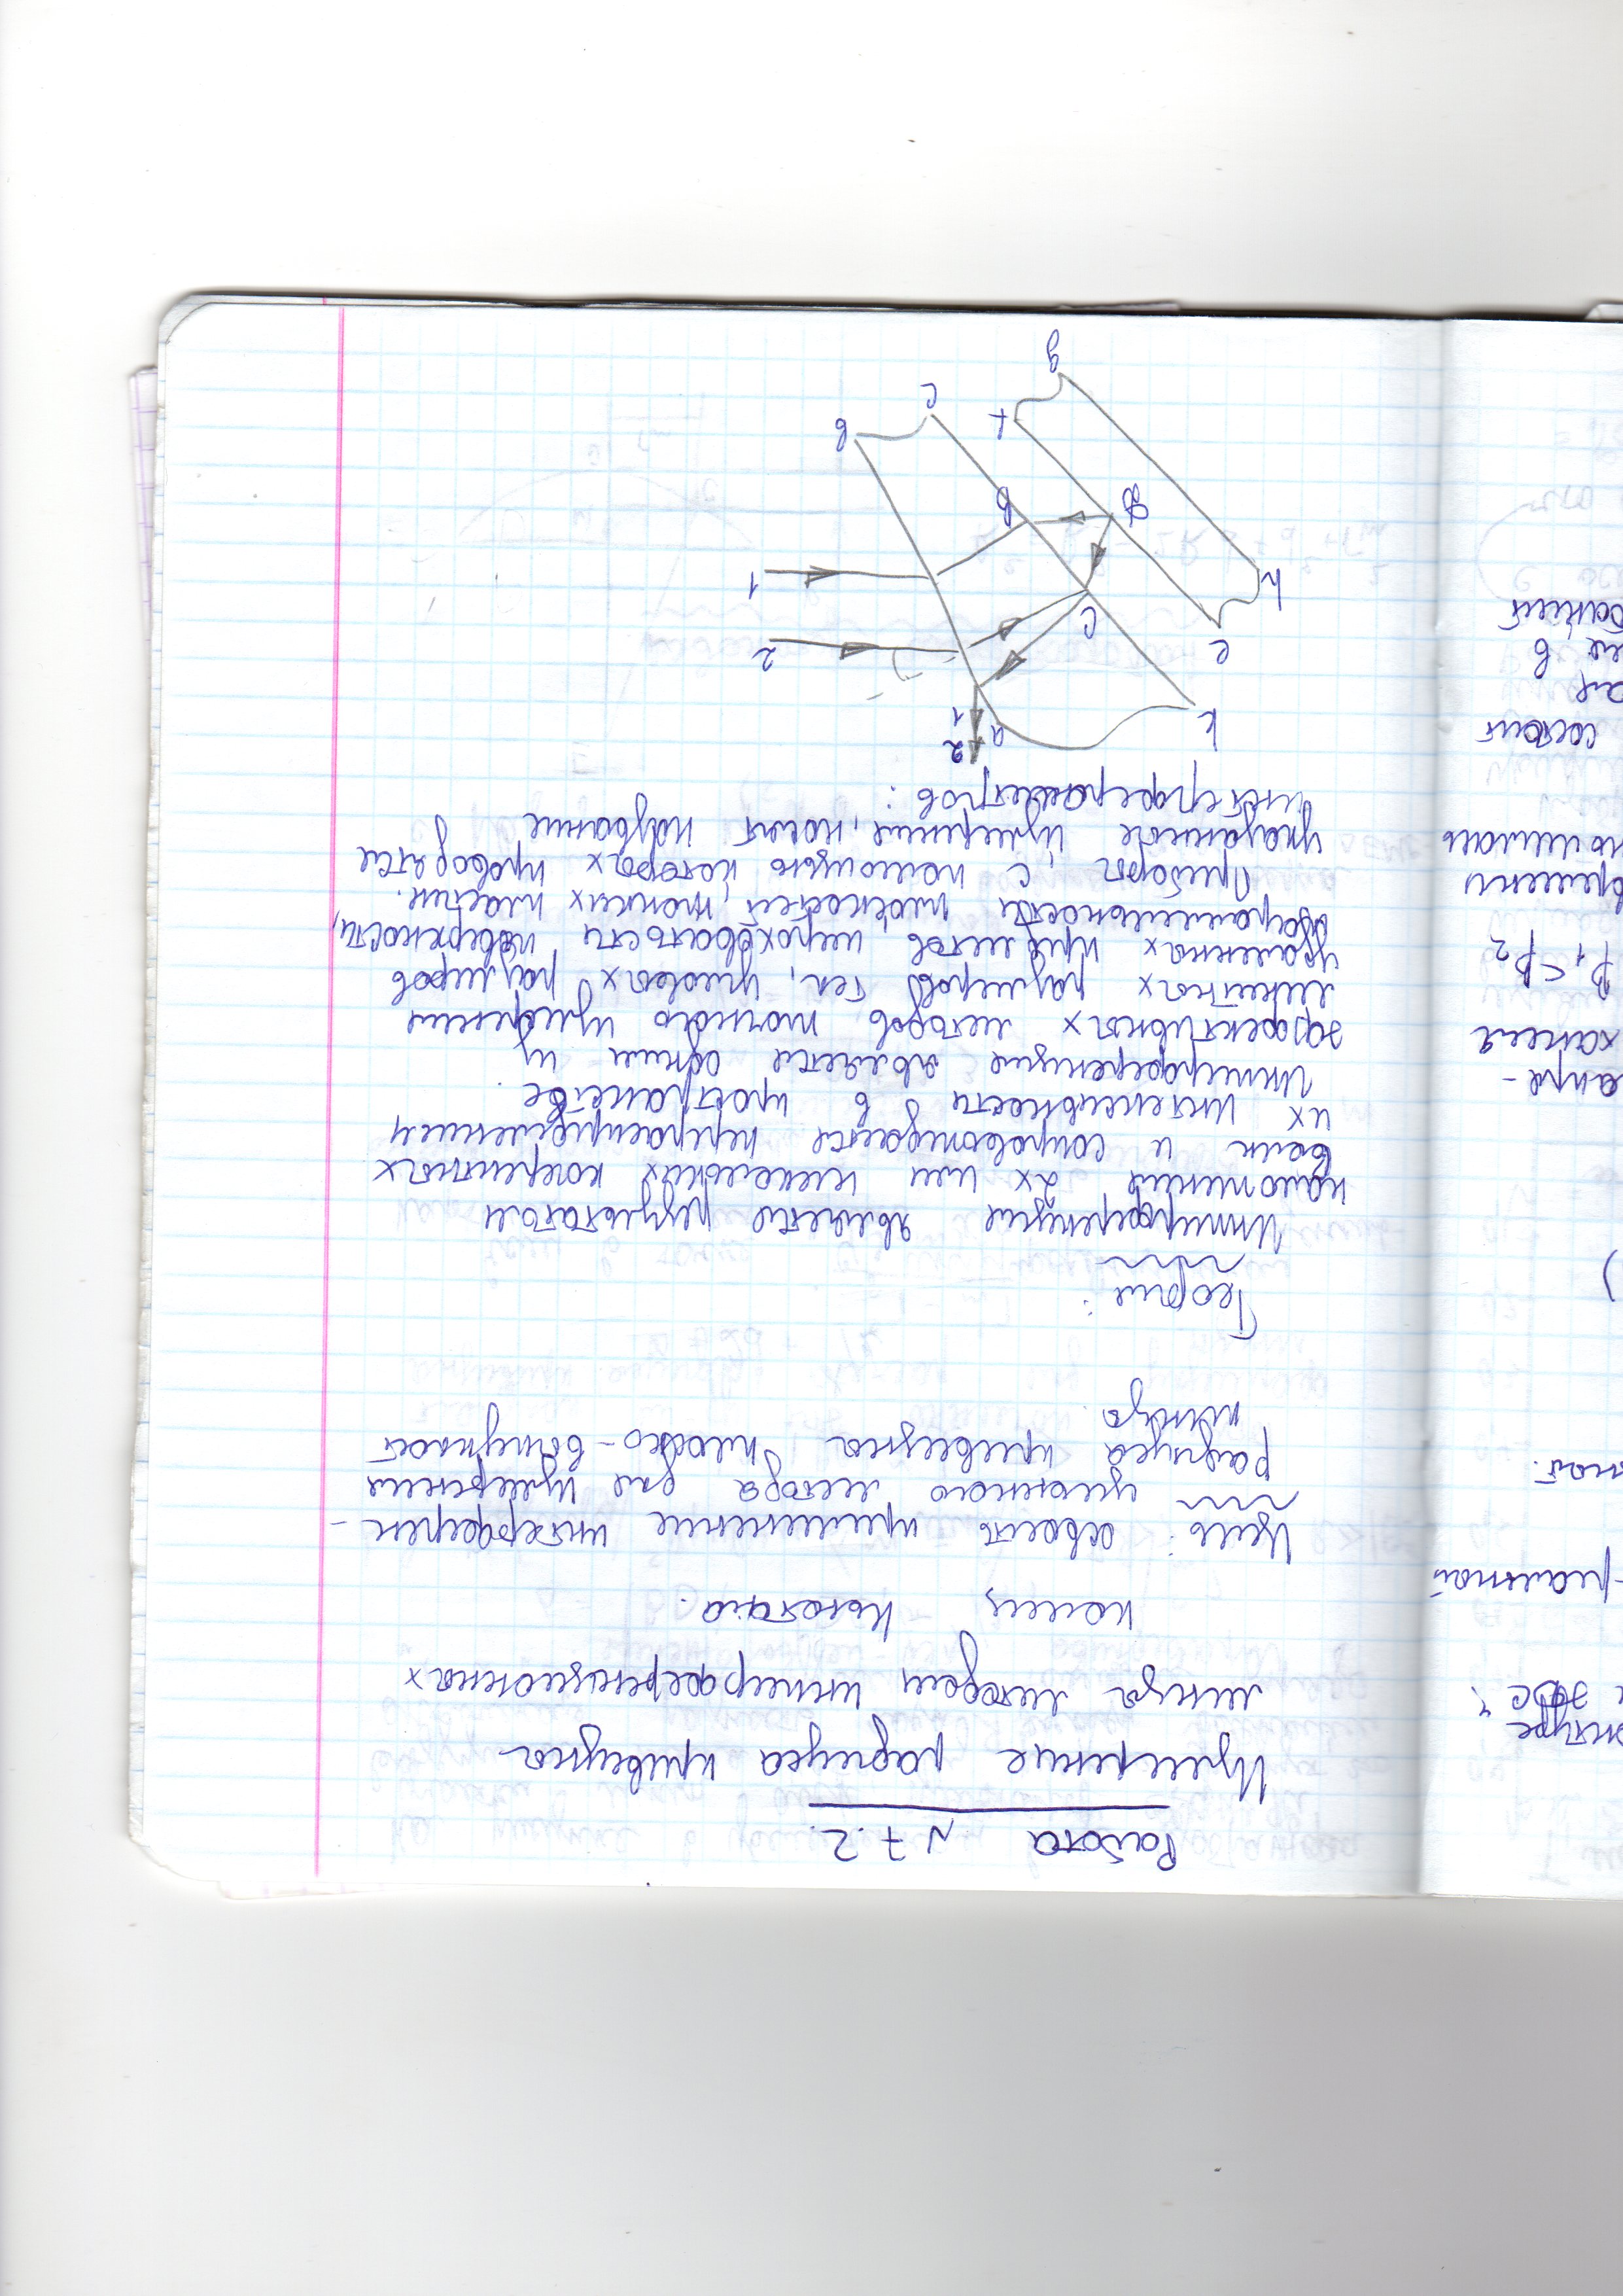 Работа N 7.2.
Измерение радиуса кривизны
линзы методом интерференционных
колец Ньютона.
Цель: освоить применение интерферен-
ционного метода для измерения
радиуса кривизны плоско-выпуклой
линзы.
Теория:
Интерференция является результатом
наложения 2х или нескольких когерентных
волн и сопровождается перераспределением
их интенсивности в пространстве.
Интерференция является одним из
эффективных методов точного измерения
линейных размеров тел, угловых размеров
удаленных предметов, шероховатости поверхности,
параллельности плоскостей, тонких пластин.
Приборы, с помощью которых проводятся
указанные измерения, носят название
интерферометров:
k a 2
1
e C 2
h 1
D B
f C в
g
онтуре
ЭДС"
-реальный
ный.
)
апра-
хания
β1 < β2
времени
состоит
ая
ия, в
баний